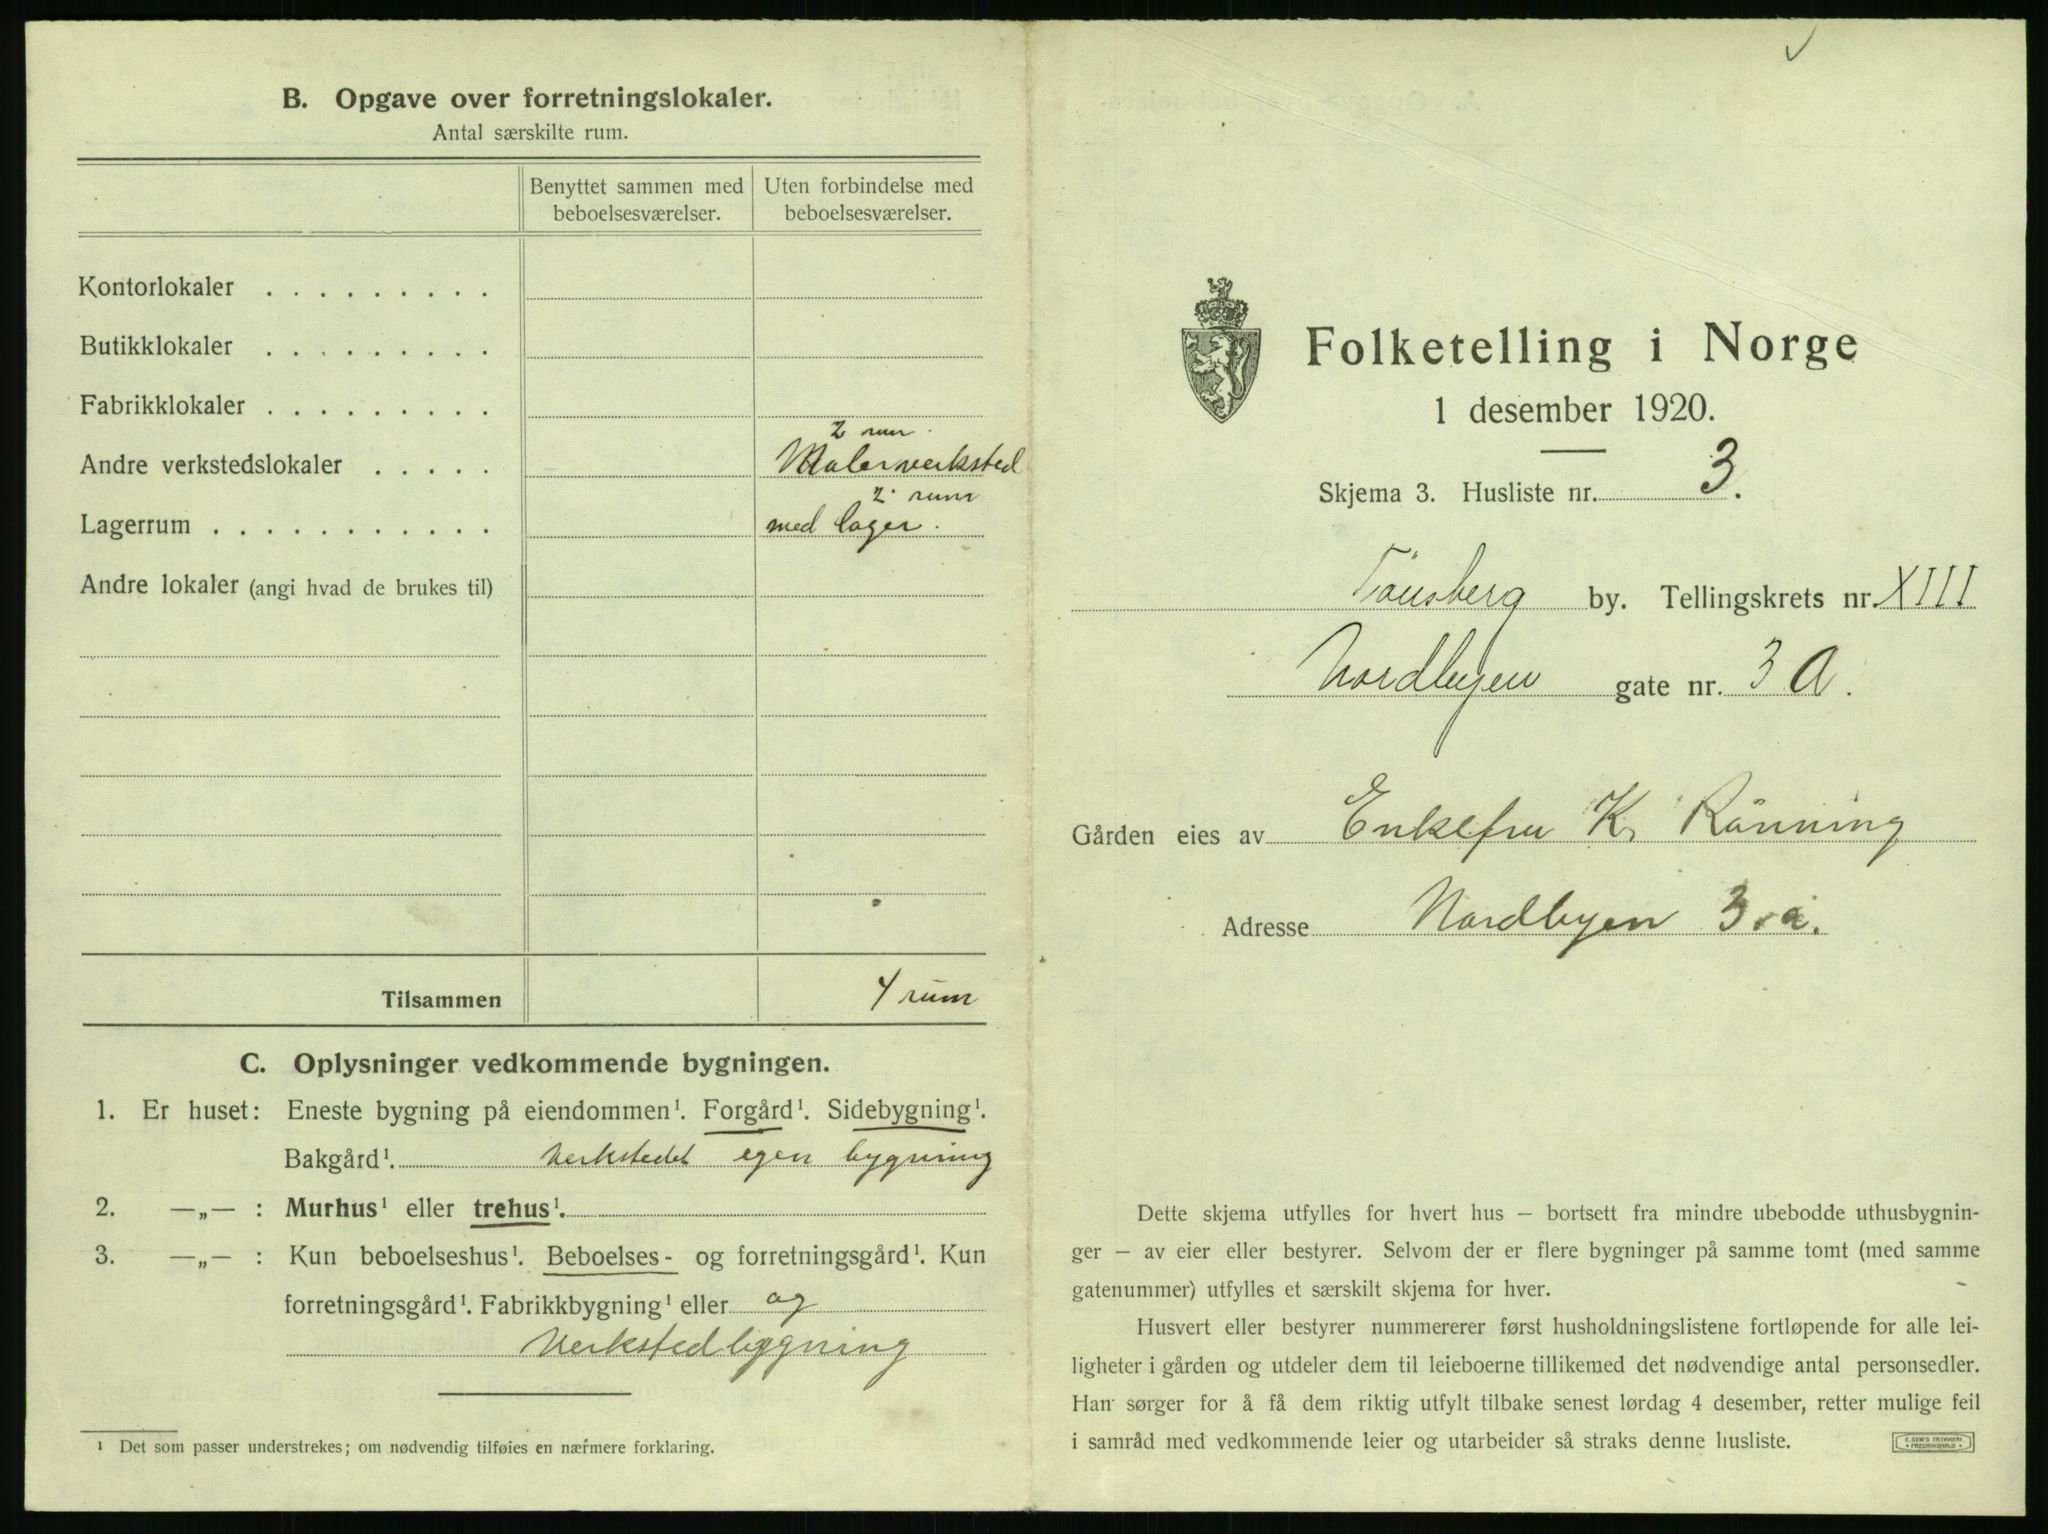 B. Opgave over forretningslokaler.
Antal særskilte rum.
Benyttet sammen med beboelsesværelser.
Uten forbindelse med beboelsesværelser.
Kontorlokaler . . . . . . . . .
Butikklokaler . . . . . . . . .
Fabrikklokaler . . . . . . . . .
2 rum.
Andre verkstedslokaler . . . . . Malerverksted
2 rum
Lagerrum . . . . . . . . . . . med lager.
Andre lokaler (angi hvad de brukes til)
Tilsammen 4 rum
C. Oplysninger vedkommende bygningen.
1. Er huset: Eneste bygning på eiendommen¹. Forgård¹. Sidebygning¹.
Bakgård¹. Verkstedet egen bygning
2. —„— : Murhus¹ eller trehus¹.
3. —„— : Kun beboelseshus¹. Beboelses- og forretningsgård¹. Kun
forretningsgård¹. Fabrikkbygning¹ eller og
Verkstedbygning
¹ Det som passer understrekes; om nødvendig tilføies en nærmere forklaring.
Folketelling i Norge
1 desember 1920.
Skjema 3. Husliste nr. 3.
Tönsberg by. Tellingskrets nr. XIII
Nordbyen gate nr. 3 A.
Gården eies av Enkefru K. Rönning
Adresse Nordbyen 3 a.
Dette skjema utfylles for hvert hus – bortsett fra mindre ubebodde uthusbygnin-
ger – av eier eller bestyrer. Selvom der er flere bygninger på samme tomt (med samme
gatenummer) utfylles et særskilt skjema for hver.
Husvert eller bestyrer nummererer først husholdningslistene fortløpende for alle lei-
ligheter i gården og utdeler dem til leieboerne tillikemed det nødvendige antal personsedler.
Han sørger for å få dem riktig utfylt tilbake senest lørdag 4 desember, retter mulige feil
i samråd med vedkommende leier og utarbeider så straks denne husliste.
E. SEM'S TRYKKERI
FREDRIKSHALD